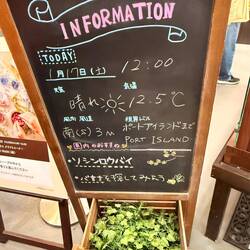 INFORMATION
TODAY
1月17日(土) 12:00
天気 気温
晴れ 12.5℃
風向 風速 視界ビル
南(S) 3m ポートアイランドまで
PORT ISLAND
園内のおすすめ
・ソシンロウバイ
・バキを探してみよう